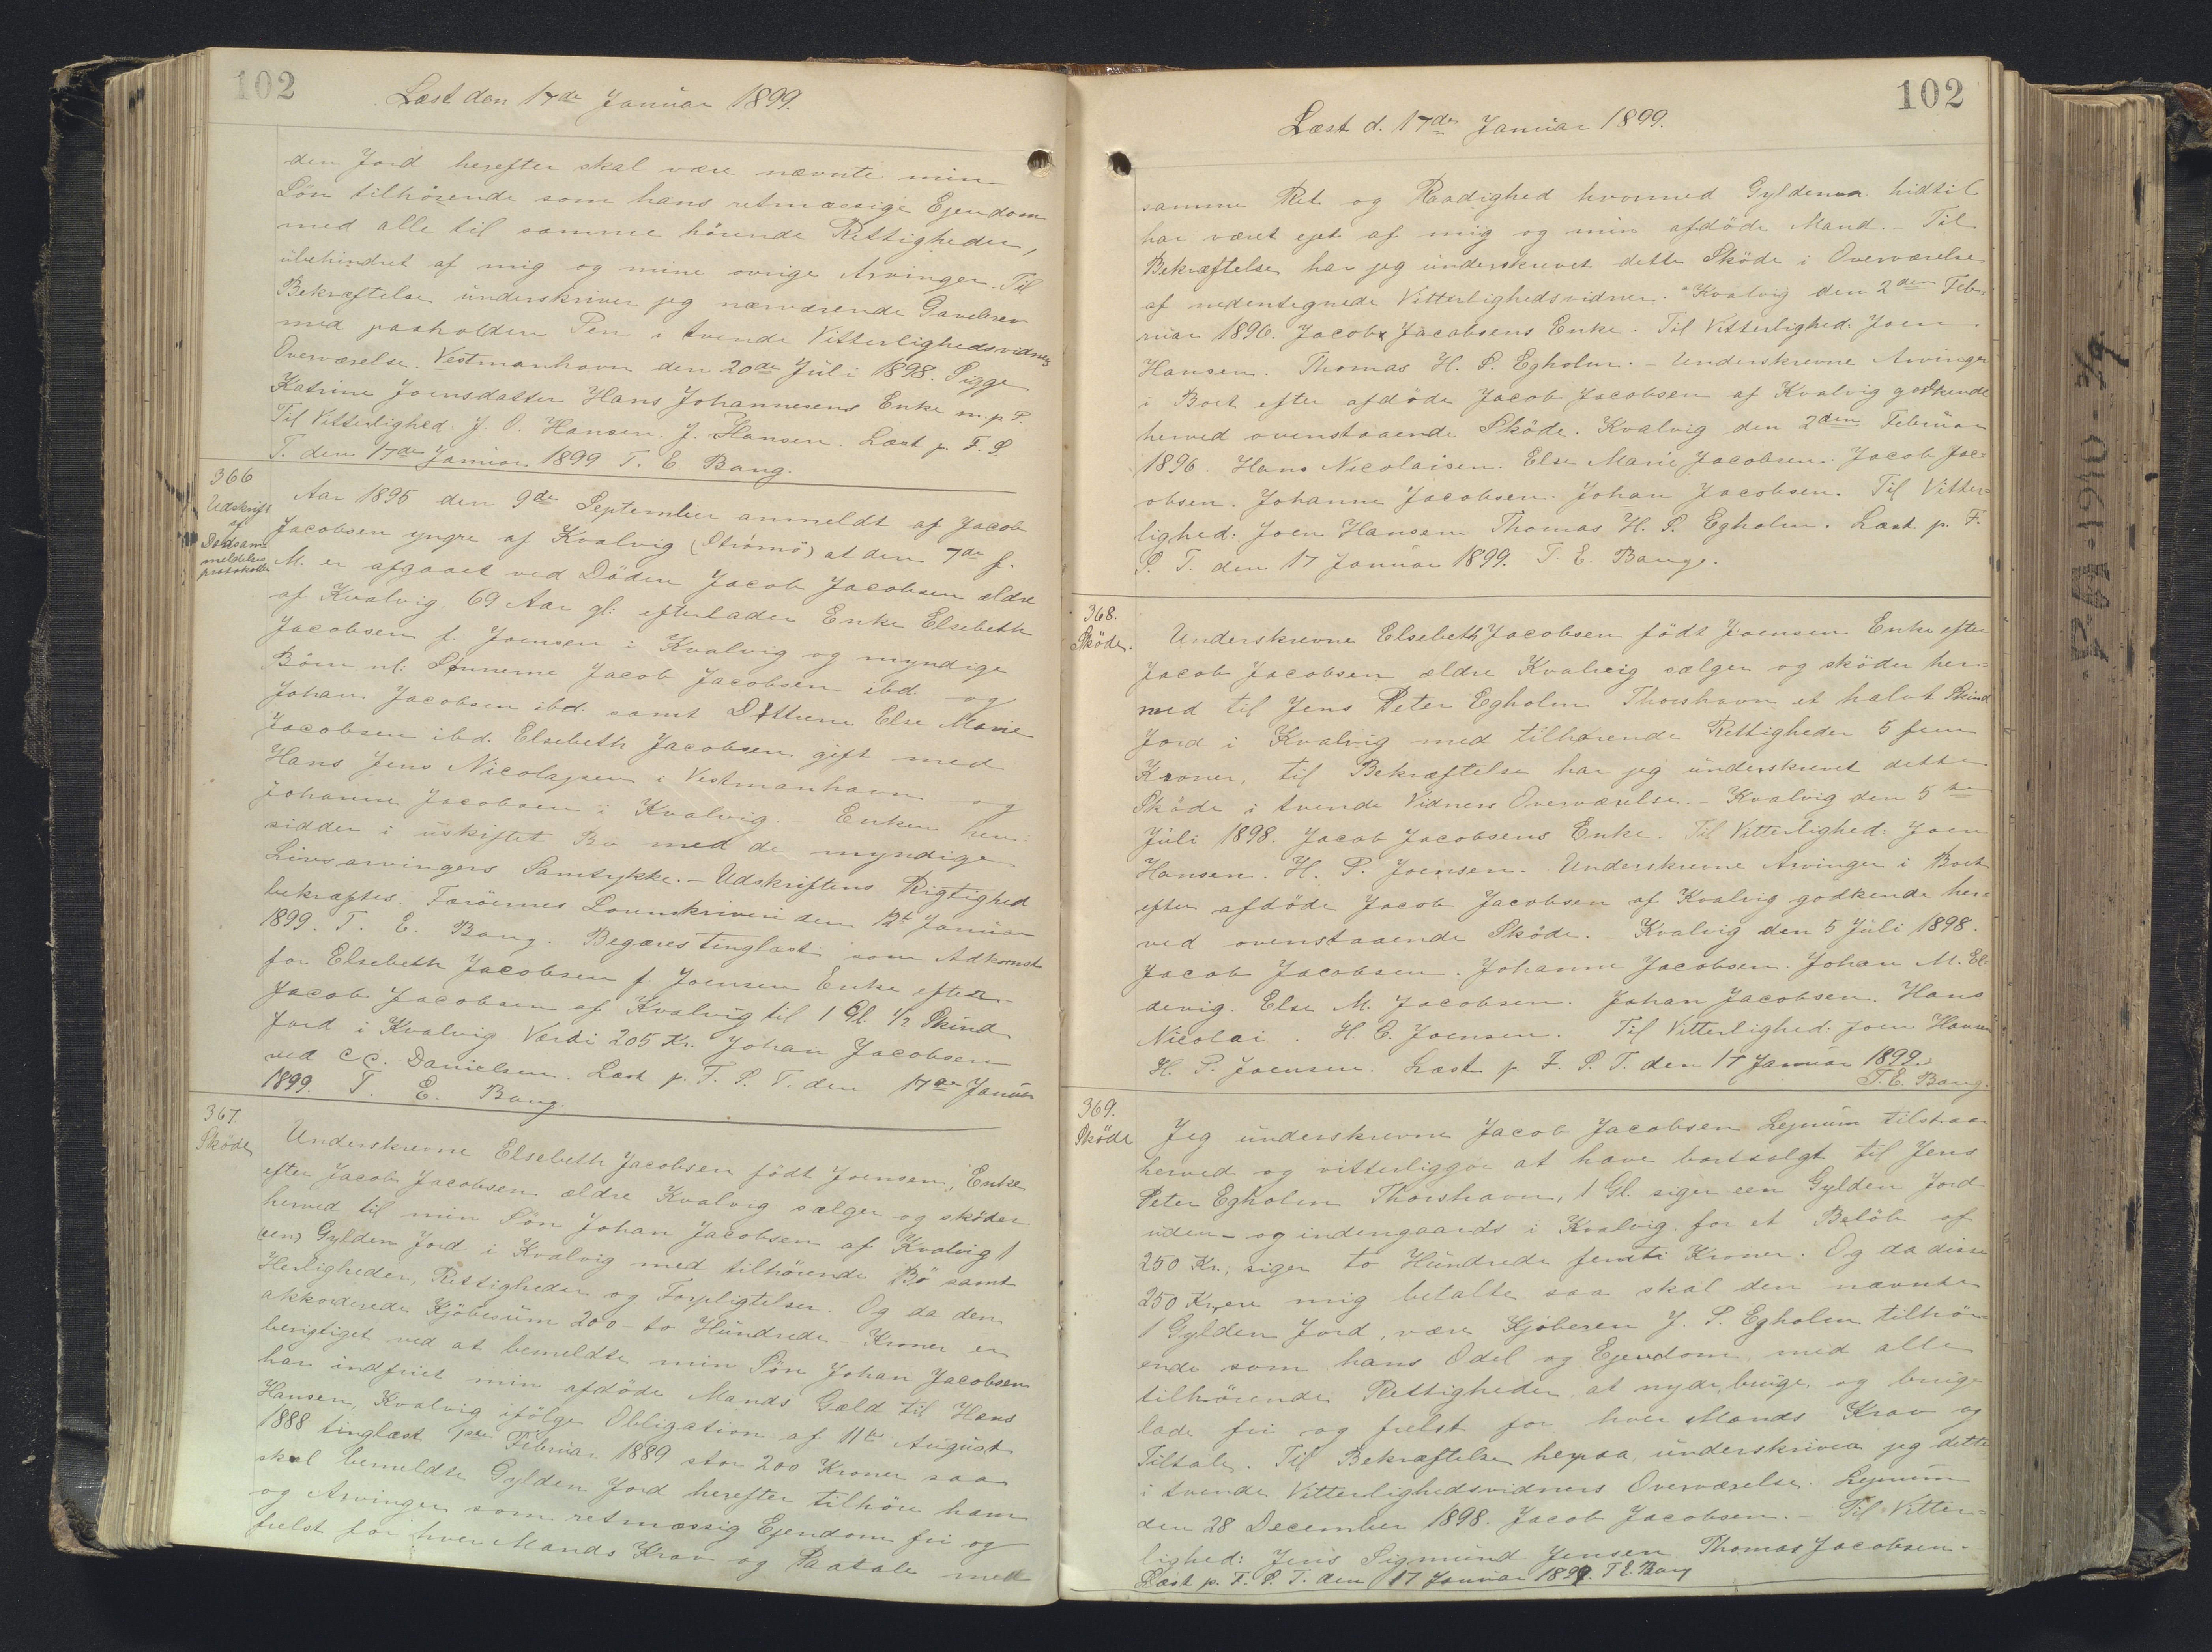 102
Læst den 17de Januar 1899.
den Jord herefter skal være nævnte min
Sön tilhörende som hans retmæssige Ejendom
med alle til samme hörende Rettigheder,
übehindret af mig og mine ovrige Arvinger. Til
Bekræftelse ünderskriver jeg nærværende Gavebrev
med paaholden Pen i tvende Vitterlighedsvidners
Overværelse. Vestmanhavn den 20de Jüli 1898. Sigge
Katrine Joensdatter Hans Johannesens Enke m. p. P.
Til Vitterlighed J. O. Hansen. J. Hansen. Læst p. F. S.
T. den 17de Januar 1899 T. E. Bang.
366
Udskrift
af
Dödsan-
meldelses
protokollen
Aar 1895 den 9de September anmeldt af Jacob
Jacobsen yngre af Kvalvig (Strömö) at den 7de f.
M. er afgaaet ved Döden Jacob Jacobsen ældre
af Kvalvig 69 Aar gl: efterlader Enke Elsebeth
Jacobsen f. Joensen i Kvalvig og myndige
Börn nl: Sönnerne Jacob Jacobsen ibd. og
Johan Jacobsen ibd. samt Döttrene Else Marie
Jacobsen ibd. Elsebeth Jacobsen gift med
Hans Jens Nicolajsen i Vestmanhavn og
Johanne Jacobsen i Kvalvig. – Enken hen-
sidder i üskiftet Bo med de myndige
Livsarvingers Samtykke. – Udskriftens Rigtighed
bekræftes. Færöernes Sorenskriveri den 12te Januar
1899. T. E. Bang. Begæres tinglæst som Adkomst
for Elsebeth Jacobsen f. Joensen Enke efter
Jacob Jacobsen af Kvalvig til 1 Gl. 1/2 Skind
Jord i Kvalvig Værdi 205 Kr. Johan Jacobsen
ved C.C. Danielsen. Læst p. F. S. T. den 17de Januar
1899. T. E. Bang.
367
Sköde
Underskrevne Elsebeth Jacobsen födt Joensen, Enke
efter Jacob Jacobsen ældre Kvalvig sælger og sköder
herved til min Sön Johan Jacobsen af Kvalvig 1
(en) Gylden Jord i Kvalvig med tilhörende Bö samt
Herligheder, Rettigheder og Forpligtelser. Og da den
akkorderede Kjöbesüm 200 – to Hündrede – Kroner er
berigtiget ved at bemeldte min Sön Johan Jacobsen
har indfriet min afdöde Mands Gæld til Hans
Hansen, Kvalvig ifölge Obligation af 11te Aügüst
1888 tinglæst 1ste Februar 1889 stor 200 Kroner saa
skal bemeldte Gylden Jord herefter tilhöre ham
og Arvinger som retmæssig Ejendom fri og
frelst for hver Mands Krav og Paatale med
102
Læst d. 17de Januar 1899.
samme Ret og Raadighed hvormed Gyldenen hidtil
har været ejet af mig og min afdöde Mand. – Til
Bekræftelse har jeg ünderskrevet dette Sköde i Overværelse
af nedentegnede Vitterlighedsvidner. Kvalvig den 2den Feb-
rüar 1896. Jacob Jacobsens Enke. Til Vitterlighed: Joen
Hansen. Thomas H. P. Egholm. – Underskrevne Arvinger
i Boet efter afdöde Jacob Jacobsen af Kvalvig godkende
herved ovenstaaende Sköde. Kvalvig den 2den Februar
1896. Hans Nicolaisen. Else Marie Jacobsen. Jacob Jac-
obsen. Johanne Jacobsen. Johan Jacobsen. Til Vitter-
lighed: Joen Hansen Thomas H. P. Egholm. Læst p. F.
S. T. den 17 Januar 1899. T. E. Bang.
368.
Sköde.
Underskrevne Elsebeth Jacobsen födt Joensen Enke efter
Jacob Jacobsen ældre Kvalvig sælger og sköder her-
med til Jens Peter Egholm Thorshavn et halvt Skind
Jord i Kvalvig med tilhørende Rettigheder 5 fem
Kroner, til Bekræftelse har jeg ünderskrevet dette
Sköde i tvende Vidners Overværelse. – Kvalvig den 5te
Jüli 1898. Jacob Jacobsens Enke. Til Vitterlighed: Joen
Hansen. H. P. Joensen. Underskrevne Arvinger i Boet
efter afdöde Jacob Jacobsen af Kvalvig godkende her-
ved ovenstaaende Sköde. – Kvalvig den 5 Jüli 1898.
Jacob Jacobsen. Johanne Jacobsen. Johan M. El-
devig. Else M. Jacobsen. Johan Jacobsen. Hans
Nicolai. H. C. Joensen. Til Vitterlighed: Joen Hansen
H. P. Joensen. Læst p. F. S. T. den 17 Januar 1899.
T. E. Bang.
369.
Sköde
Jeg ünderskrevne Jacob Jacobsen Lejnum tilstaar
herved og vitterliggör at have bortsolgt til Jens
Peter Egholm Thorshavn, 1 Gl. siger een Gylden Jord
uden- og indengaards i Kvalvig for et Belöb af
250 Kr., siger to Hündrede femti Kroner. Og da disse
250 Kr. ere mig betalte saa skal den nævnte
1 Gylden Jord, være Kjöberen J. P. Egholm tilhör-
ende som hans Odel og Ejendom, med alle
tilhörende Rettigheder at nyde, brüge og brüge
lade fri og frelst for hver Mands Krav og
Tiltale. Til Bekræftelse herpaa ünderskriver jeg dette
i tvende Vitterlighedsvidners Overværelse. Lejnum
den 28 December 1898. Jacob Jacobsen. – Til Vitter-
lighed: Jens Sigmund Jensen Thomas Jacobsen. –
Læst p. F. S. T. den 17 Januar 1899. T E Bang